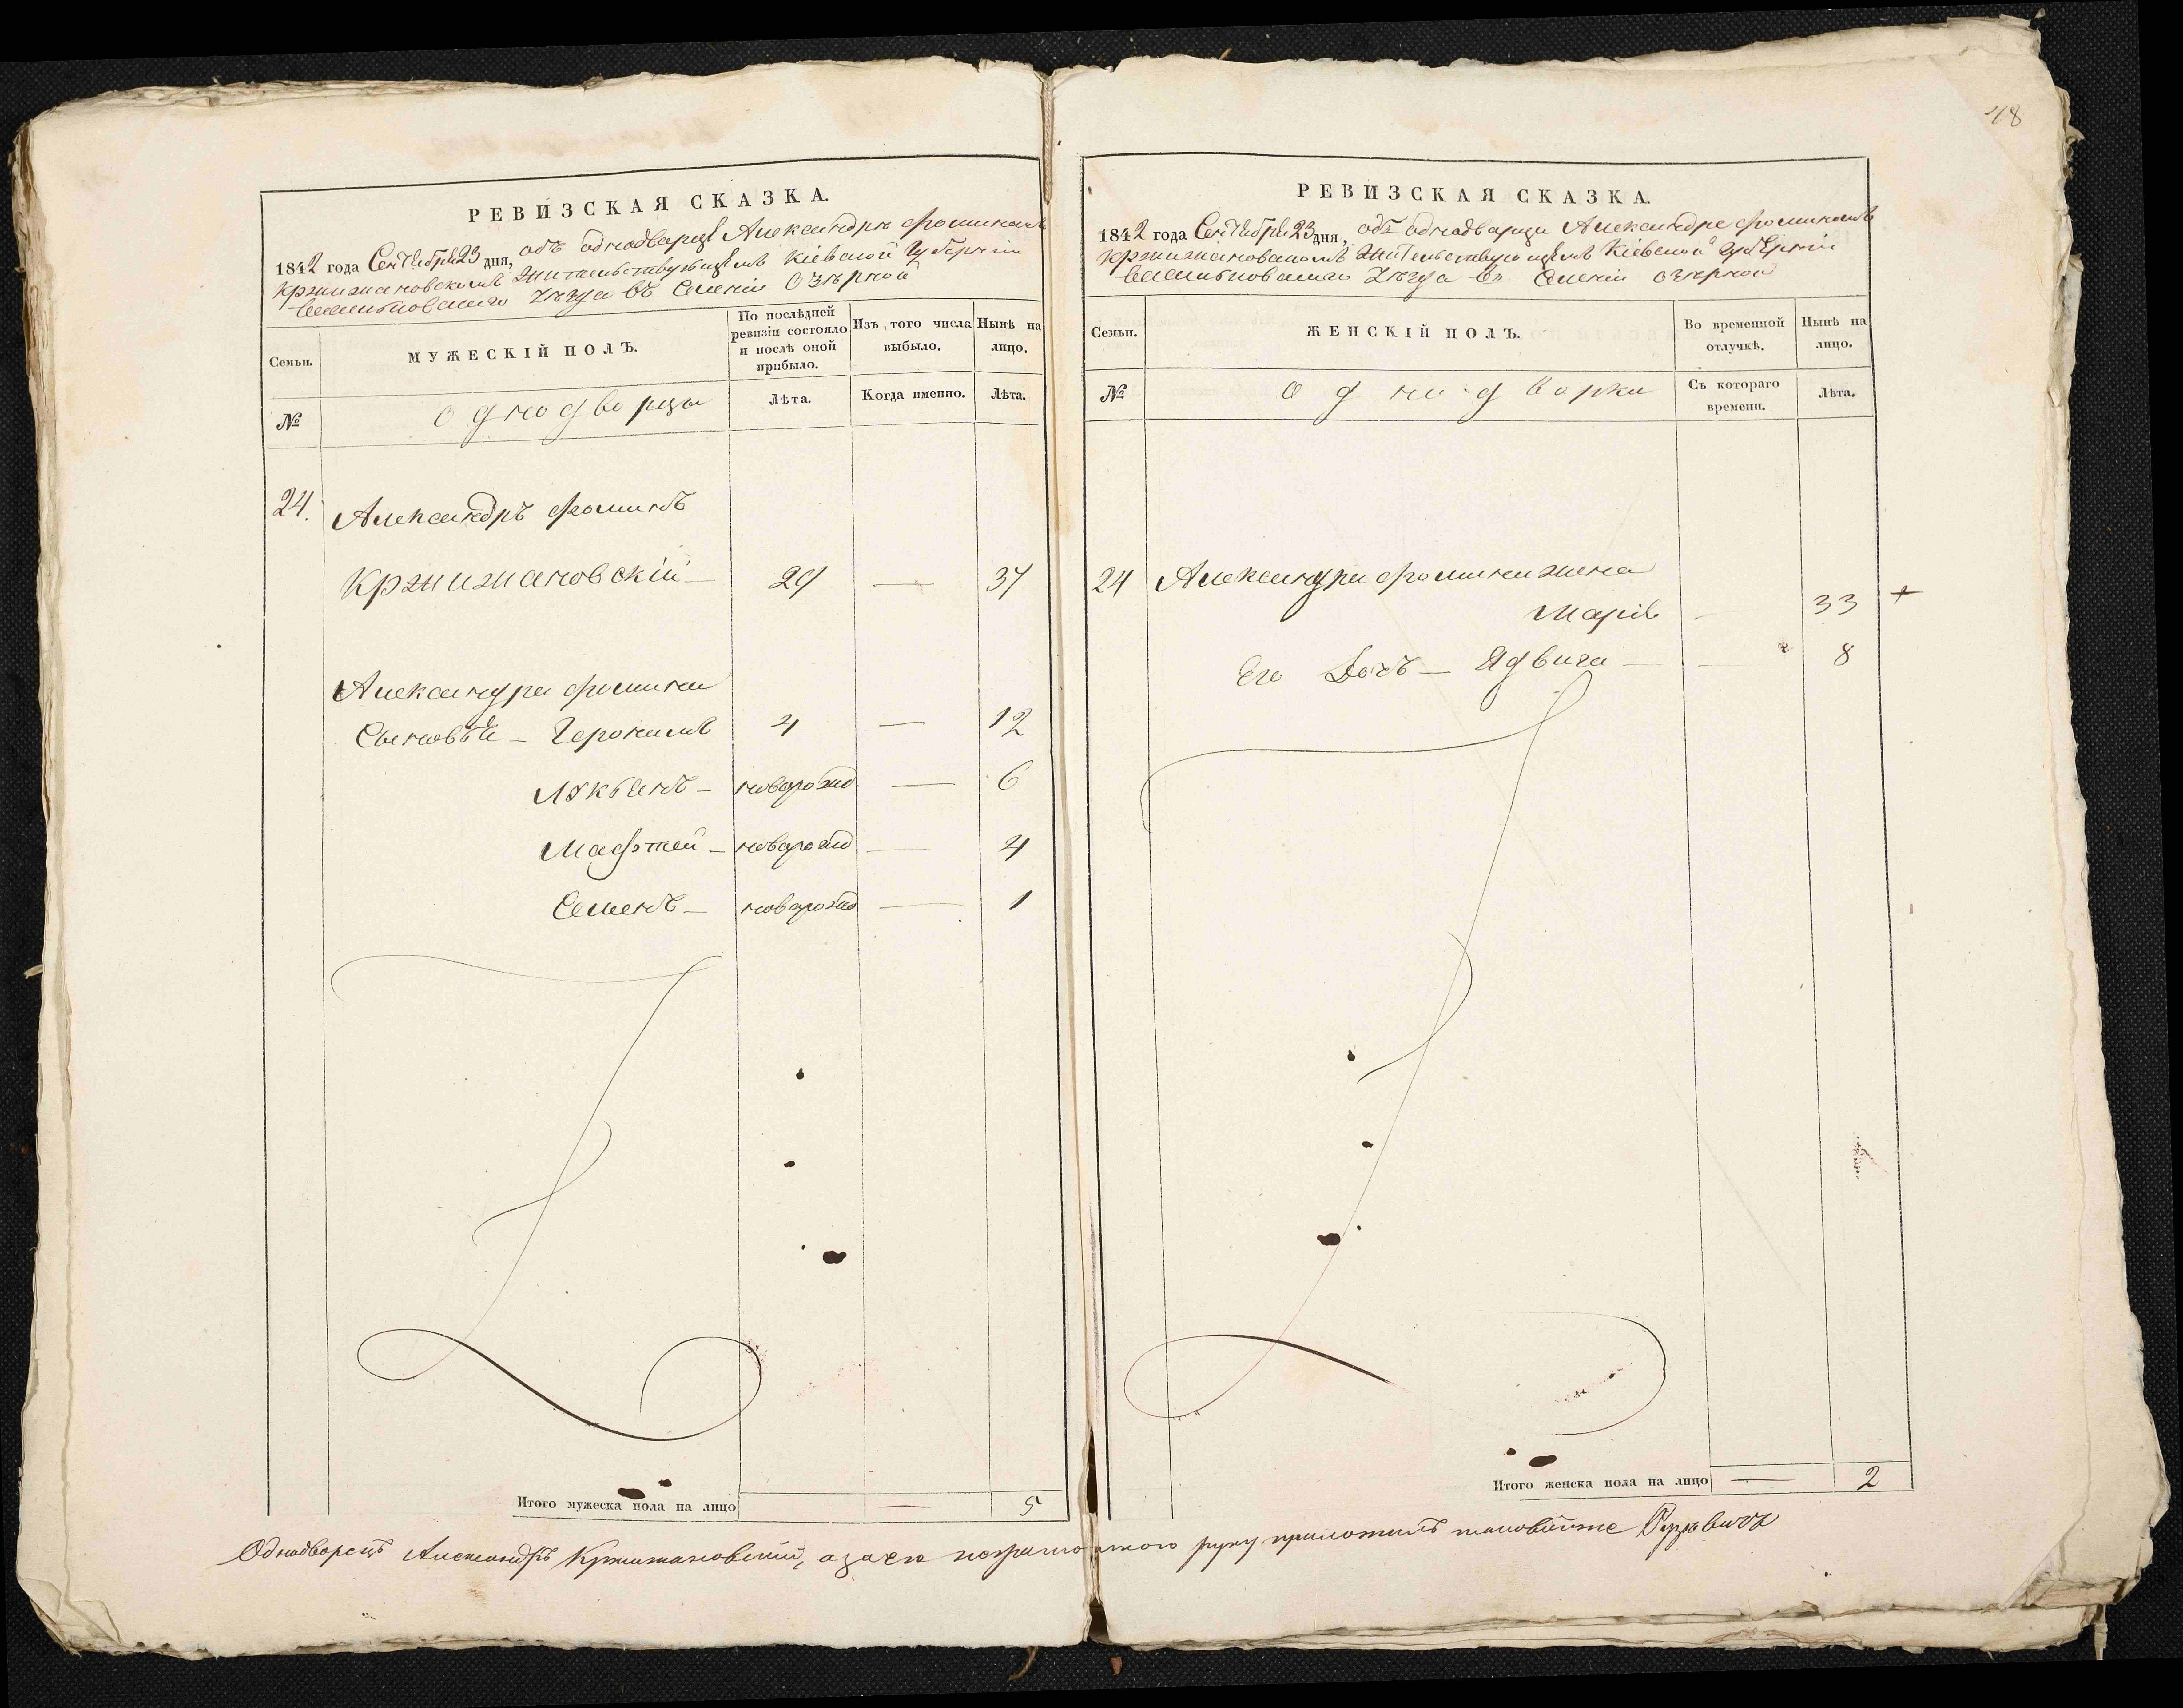 48
РЕВИЗСКАЯ СКАЗКА.
1842 года Сентября 23 дня, объ однодворцѣ Александрѣ Фоминомъ
Кржижановскомъ жительствующемъ Кіевской Губерніи
Уѣзда въ Селеніи Озѣрной
Семьи.
МУЖЕСКІЙ ПОЛЪ.
По послѣдней ревизіи состояло и послѣ оной прибыло.
Изъ того числа выбыло.
Нынѣ на лицо.
№
однодворцы
Лѣта.
Когда именно.
Лѣта.
24. Александръ Фоминъ
Кржижановскій — 29 — 37
Александра Фомина
Сыновья — Геронимъ 4 — 12
Лукьянъ — новорожд. — 6
Мафтей — новорожд — 4
Семенъ — новорожд — 1
Итого мужеска пола на лицо — 5
РЕВИЗСКАЯ СКАЗКА.
1842 года Сентября 23 дня, объ однодворци Александре Фоминомъ
Кржижановскомъ жительствующемъ Кіевской Губерніи
Уѣзда въ Селеніи Озѣрной
Семьи.
ЖЕНСКІЙ ПОЛЪ.
Во временной отлучкѣ.
Нынѣ на лицо.
№
однодворки
Съ котораго времени.
Лѣта.
24 Александра Фомина жена
Марія — 33 +
Его Дочь — Ядвига — — 8
Итого женска пола на лицо — 2
Однодворецъ Александръ Кржижановскій, а за его неграмотного руку приложилъ